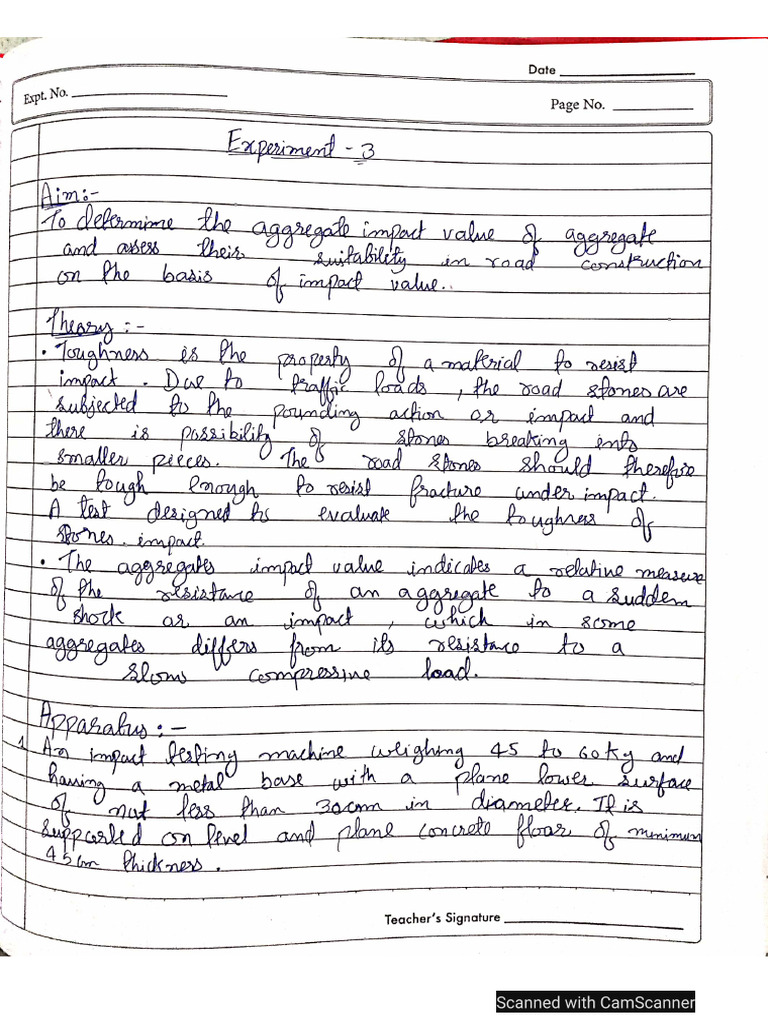 Date
Expt. No.
Page No.
Experiment - 3
Aim:-
To determine the aggregate impact value of aggregate
and assess their suitability in road construction
on the basis of impact value..
Theory :-
• Toughness is the property of a material to resist
impact. Due to traffic loads, the road stones are
subjected to the pounding action or impact and
there is possibility of stones breaking into
smaller pieces. The road stones should therefore
be tough enough to resist fracture under impact.
A test designed to evaluate the toughness of
stones. impact.
• The aggregates impact value indicates a relative measure
of the resistance of an aggregate to a sudden
shock or an impact, which in some
aggregates differs from its resistance to a
slow compressive load.
Apparatus :-
1. An impact testing machine weighing 45 to 60kg and
having a metal base with a plane lower surface
of not less than 30cm in diameter. It is
supported on level and plane concrete floor of minimum
45cm thickness.
Teacher's Signature
Scanned with CamScanner